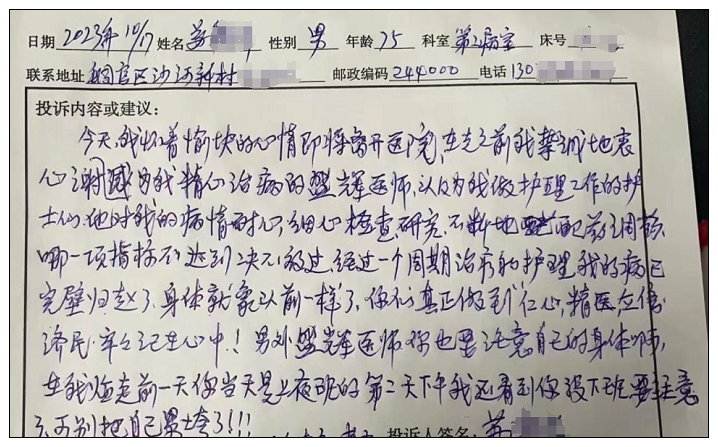 日期 2023年10/17 姓名 性别 男 年龄 75 科室 第二病室 床号
联系地址 铜官区沙河新村 邮政编码 244000 电话 130
投诉内容或建议:
今天,我怀着愉快的心情即将离开医院,在走之前我禁不住地衷
心谢感为我精心治病的盟辉医师,以及为我做护理工作的护
士们,他对我的病情耐心,细心检查,研究,不断地配药调整,
哪一项指标不达到决不放过,经过一个周期治疗和护理,我的病已
完璧归赵了,身体就象以前一样了,你们真正做到“仁心,精医,
济民,牢牢记在心中!另外 医师,你也要注意自己的身体啊,
在我临走前一天你当天是上夜班的,第二天下午我还看到你没下班,要注意
了,可别把自己累垮了!!!
投诉人签名: